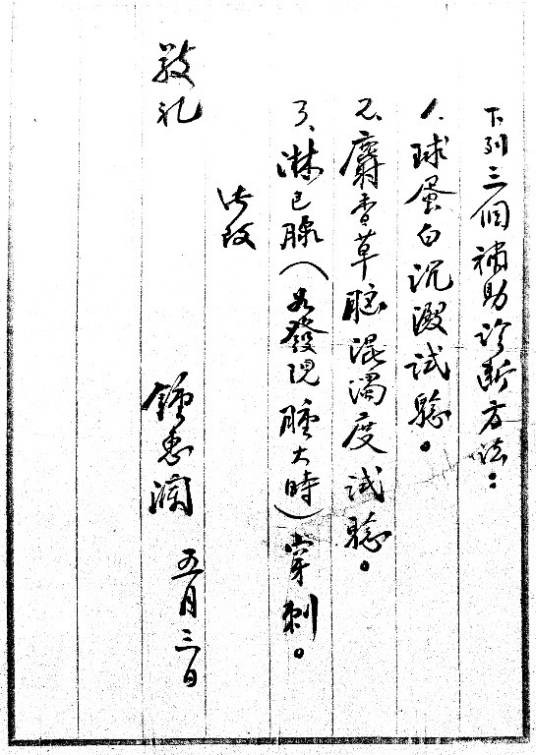 下列三個補助診斷方法：
1、球蛋白沉澱試驗。
2、麝香草腦混濁度試驗。
3、淋巴腺（如發現腫大時）穿刺。
此致
敬礼
鍾惠瀾 五月三日